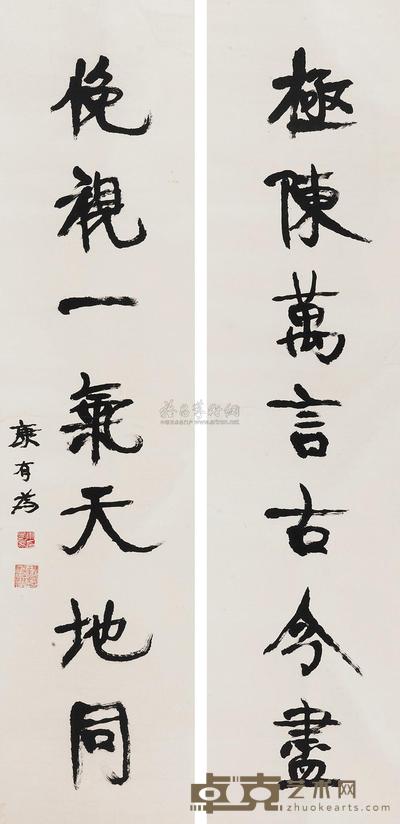 極陳萬言古今盡
俛視一氣天地同
康有為
卓克艺术网
zhuokearts.com